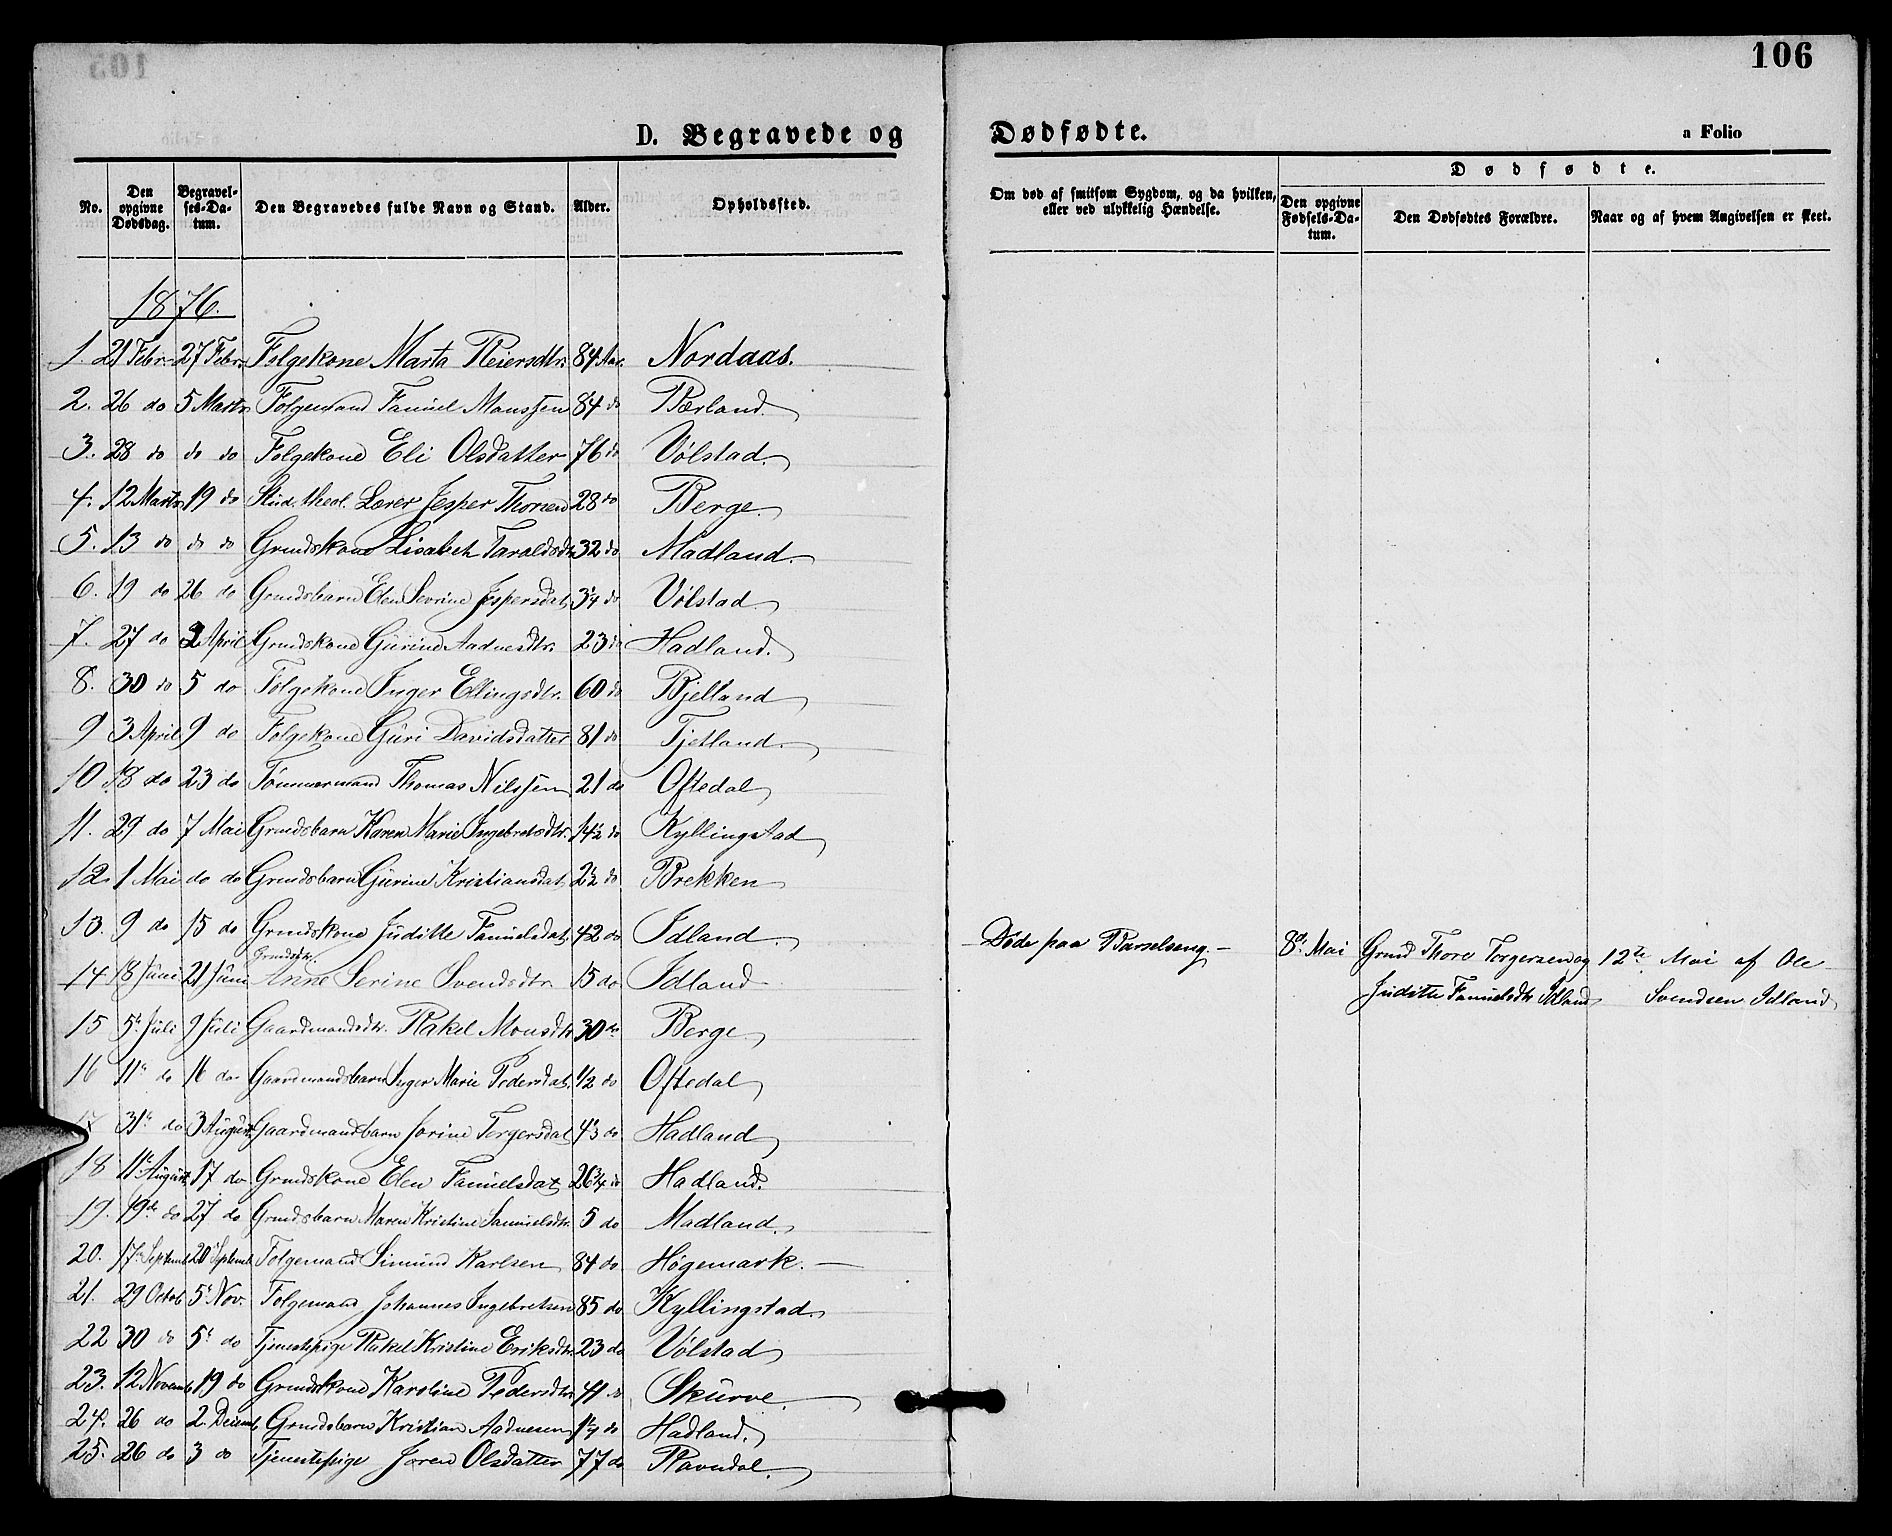 106
D. Begravede og Dødfødte.
a Folio
No. Den opgivne Dødsdag. Begravelses-Datum. Den Begravedes fulde Navn og Stand. Alder. Opholdssted. Om død af smitsom Sygdom, og da hvilken, eller ved ulykkelig Hændelse. Dødfødte.
Den opgivne Fødsels-Datum. Den Dødfødtes Forældre. Naar og af hvem Angivelsen er skeet.
1876.
1. 21 Febr. 27 Febr. Folgekone Marta Reiersdtr. 84 Aar. Nordaas.
2. 26 do 5 Marts Folgemand Tamiel Monssen 84 do Bærland.
3. 28 do do do Folgekone Eli Olsdatter 76 do Vølstad.
4. 12 Marts 19 do Stud. theol. Lærer Jesper Thorsen 28 do Berge.
5. 13 do do do Grmdskone Lisabeth Taraldsdtr 32 do Madland.
6. 19 do 26 do Grmdsbarn Elen Sevrine Jespersdat. 3¼ do Vølstad
7. 27 do 2 April Grmdskone Gurine Aadnesdtr. 23 do Hadland.
8. 30 do 5 do Folgekone Inger Ellingsdtr. 60 do Bjelland
9 3 April 9 do Folgekone Guri Davidsdatter 81 do Tjetland.
10. 18 do 23 do Tømmermand Thomas Nilssen 21 do Oftedal
11. 29 do 7 Mai Grmdsbarn Karen Marie Ingebretsdtr. 14½ do Kyllingstad
12. 1 Mai do do Grmdsbarn Gurine Kristiansdat. 2½ do Brekken
13. 9 do 15 do Grmdskone Juditte Tamielsdat. 42 do Idland. Døde paa Barselseng.- 8de Mai Grmd Thore Torgersen og 12te Mai af Ole
Juditte Tamielsdtr Idland Svendsen Idland
Grmdsdtr.
14 18 Juni 21 Juni Anne Serine Svendsdtr. 15 do Idland
15 5te Juli 9 Juli Gaardmandsdtr. Rakel Monsdtr 30 do Berge
16 11te do 16 do Gaardmandsbarn Inger Marie Pedersdat. ½ do Oftedal
17 31te do 3 August Gaardmandsbarn Jorine Torgersdat 4⅓ do Hadland
18 11te August 17 do Grmdskone Elen Tamielsdat 26¾ do Hadland.
19. 19de do 27 do Grmdsbarn Maren Kristine Samuelsdtr. 5 do Madland.
20. 17de Septemb 20 Septemb Folgemand Simund Karlsen 84 do Høgemark.
21. 29 Octob 5te Nov. Folgemand Johannes Ingebretsen 85 do Kyllingstad.
22 30 do 5te do Tjenestepige Rakel Kristine Eriksdtr. 23 do Vølstad
23. 12 Novemb 19 do Grmdskone Karoline Pedersdtr 41 do Skurve.
24. 26 do 2. Decemb. Grmdsbarn Kristian Aadnesen 1¼ do Hadland.
25. 26 do 3 do Tjenestepige Joren Olsdatter 77 do Ravndal.